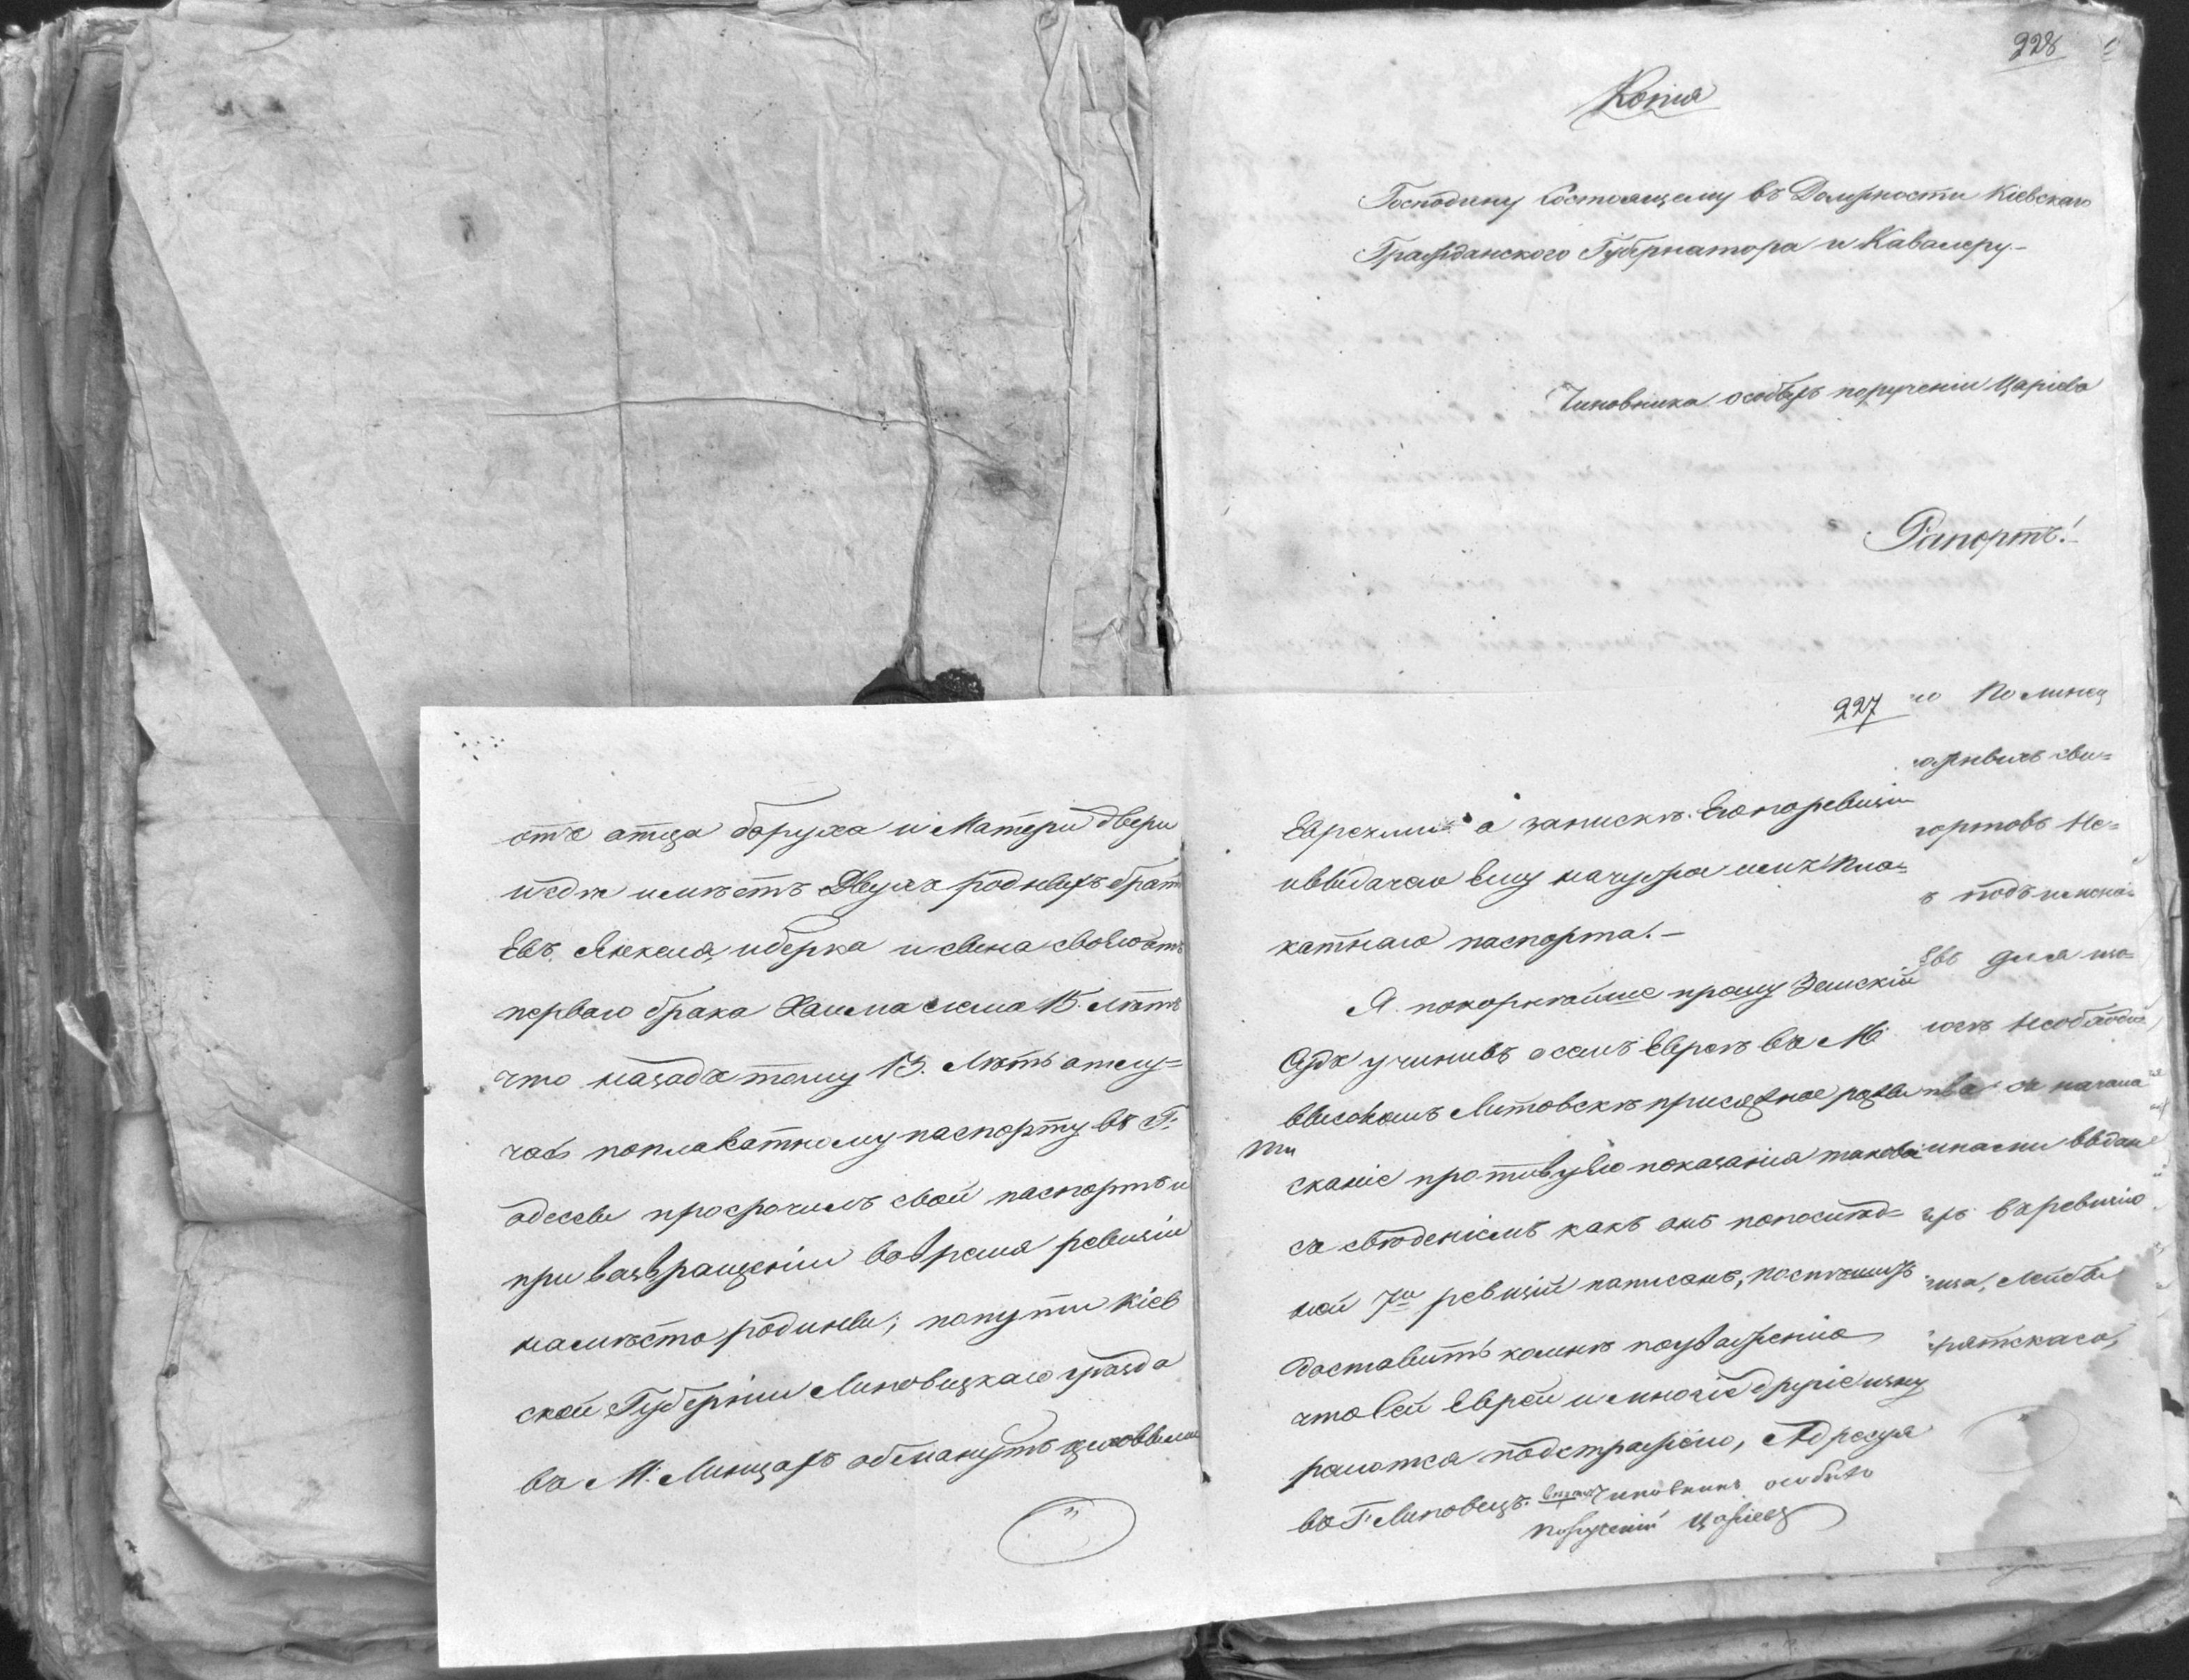 228
Копія
Господину Состоящему въ Должности Кіевскаго
Гражданского Губернатора и Кавалеру
Чиновника особыхъ порученіи Царіева
Рапортъ!
отъ отца боруха и Матери двери
и где имѣетъ Двухъ родныхъ брат
Евъ, Янкеля, иберка и сына своего отъ
перваго брака Хаима 15. лѣтъ
что назадъ тому 13. Лѣтъ отлу=
часъ поплакатному паспорту въ Г:
одессы просрочилъ свой паспортъ и
при вазвращеніи вовремя ревизіи
намѣсто родины; попути Кіев
ской Губерніи Липовецкаго уѣзда
въ М: Линцахъ обманутъ
227
Евреями о запискѣ Его поревизіи
ивыдачею Ему начужое имя Пла=
катнаго паспорта.
Я покорнѣйше прошу Земскій
Судъ учинивъ осемъ Евреѣ въ М
высокомъ Литовскѣ присяжное разы
ска­ніе противу Его показанія
съ свѣденіемъ какъ онъ попослѣд=
ней 7й ревизіи написанъ, поспѣшить
доставить комнѣ поуваженію
что Сей Еврей и многіе другіе
подстражею, Адресуя
въ Г. Липовецъ. Чиновникъ особыхъ
порученій Царіевъ
го По линец
свы=
портовъ Не=
ъ подъ имена=
Евъ для
Необлыд
съ начала
инами выдан
въревизію
Лейбы